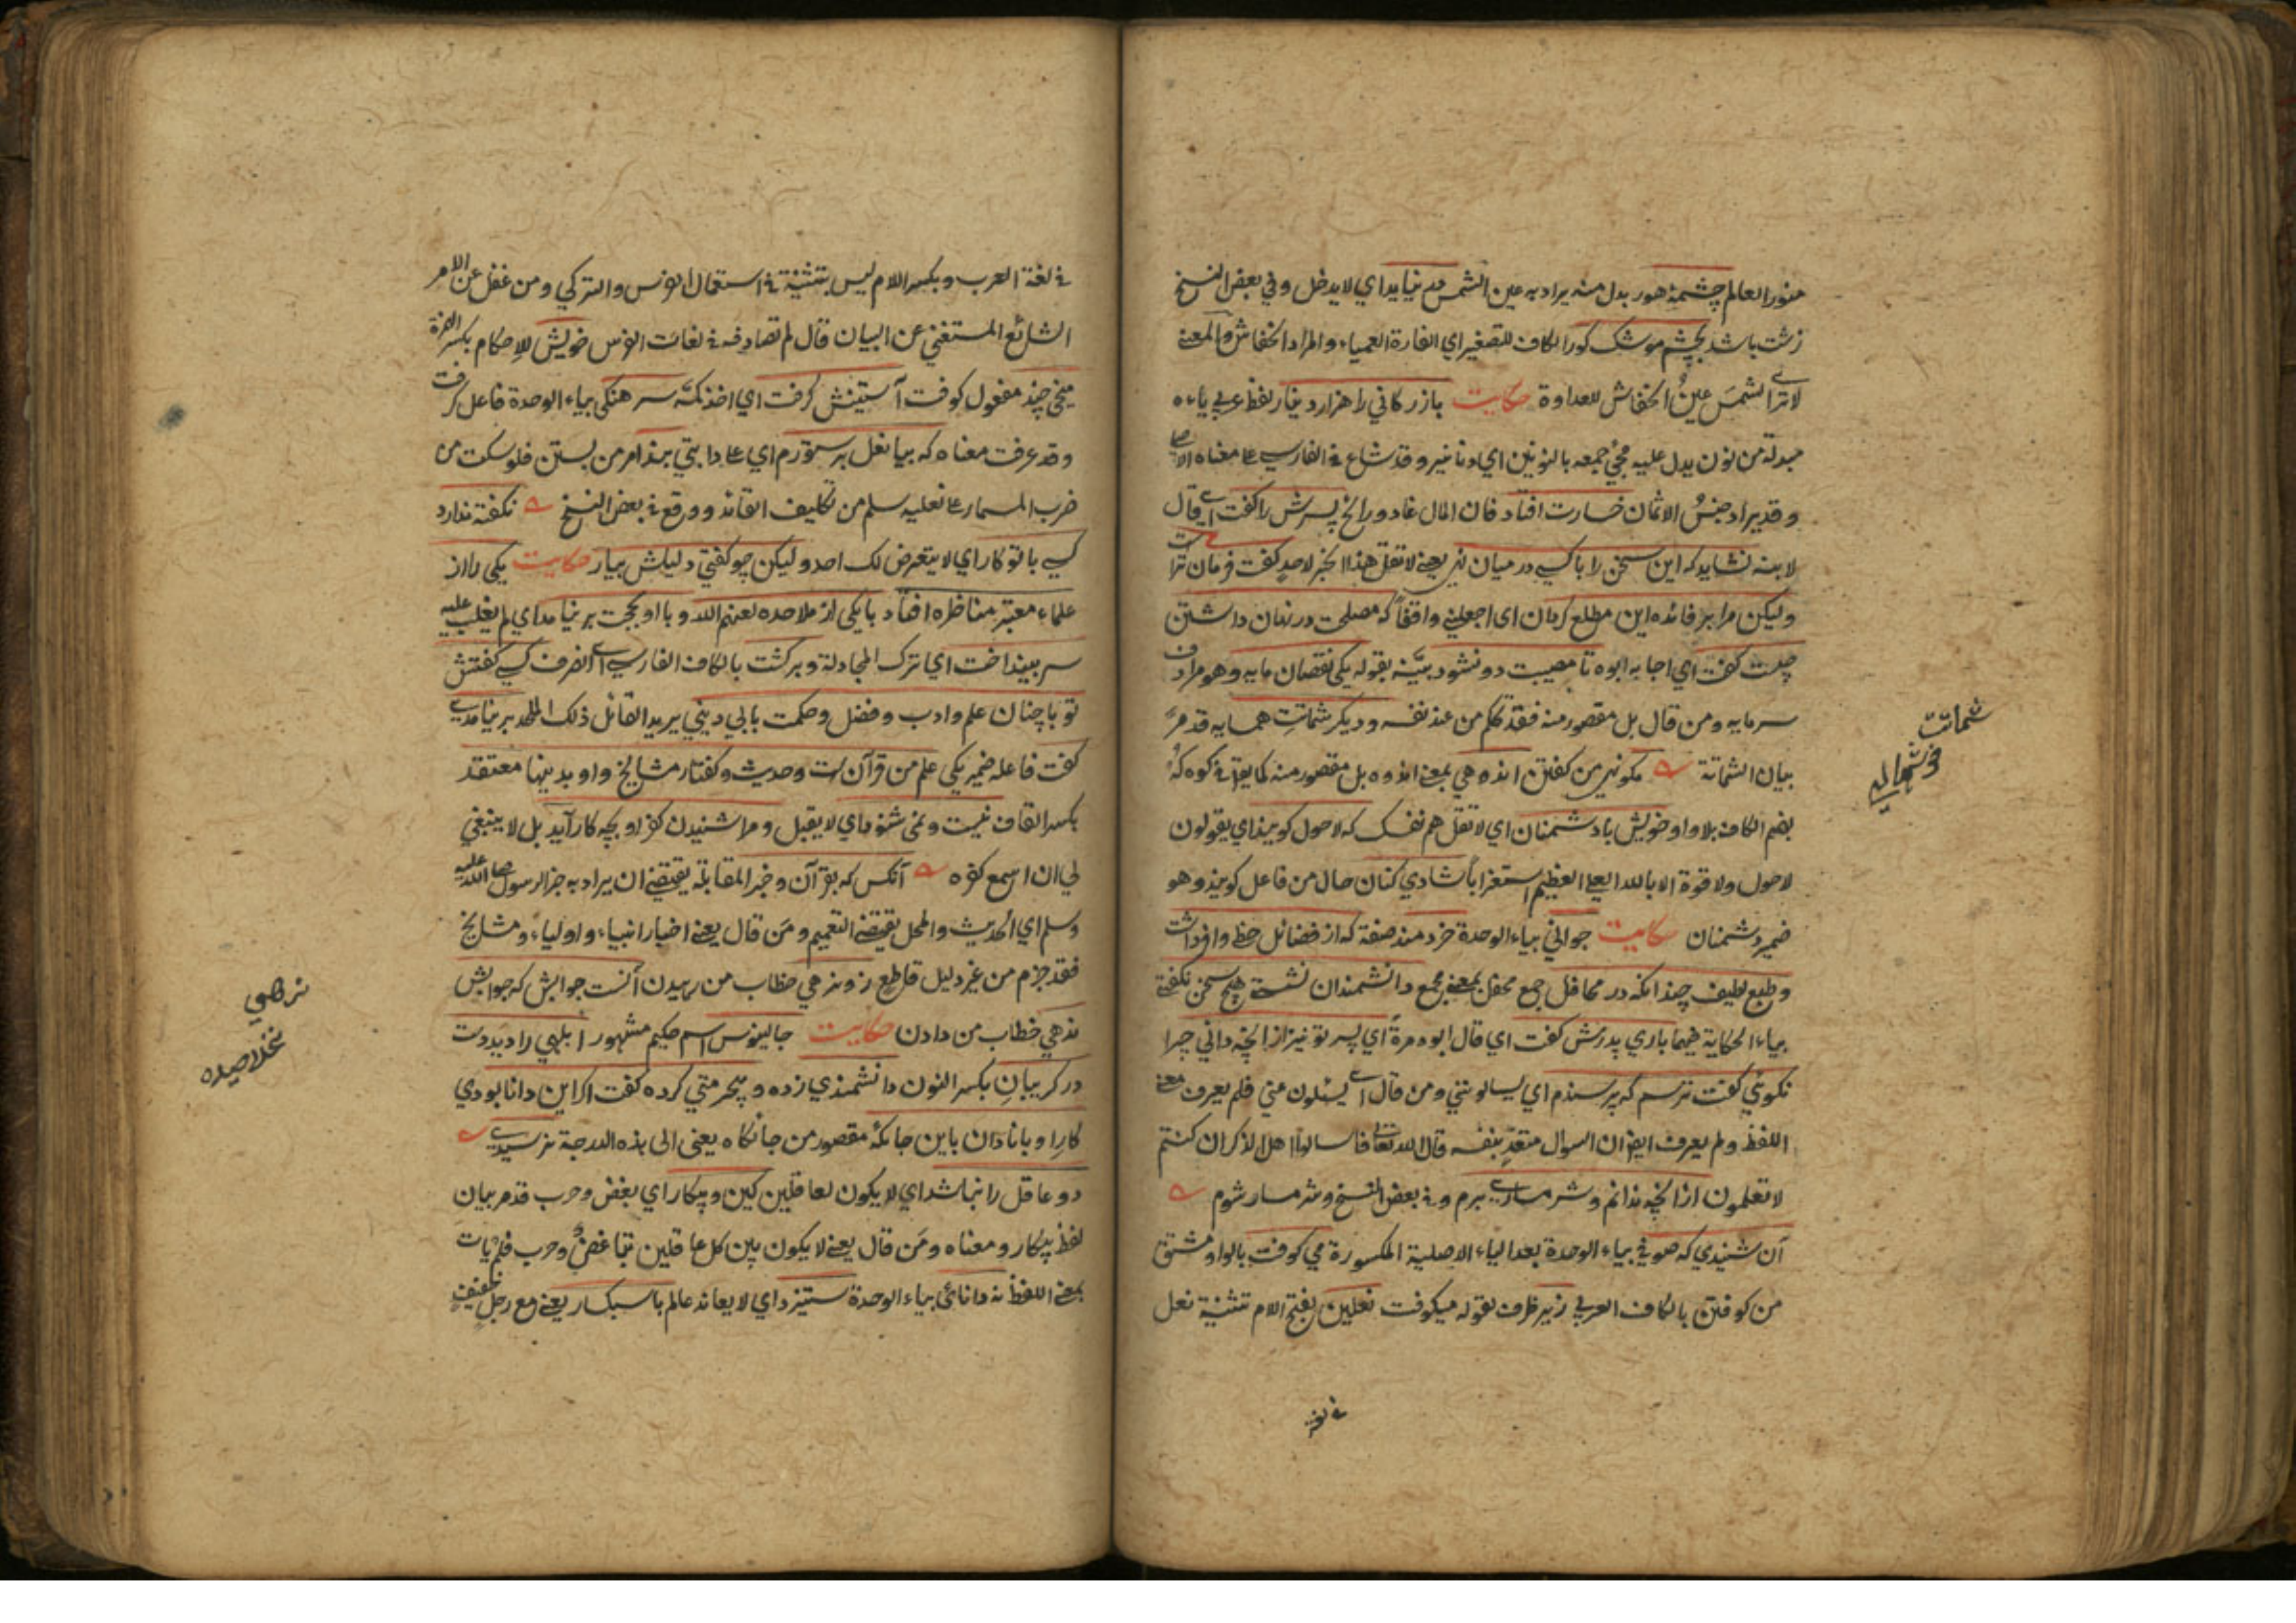 منور العالم چشمهٔ هور بدل منه يراد به عين الشمس مى نيايد اي لا يدخل وفي بعض النسخ
زشت باشد بچشم موشك كور الكاف للتصغير اي الفارة العمياء والمراد الخفاش والمعنى
لا ترى الشمسَ عينُ الخفاش للعداوة حكايت بازركاني را هزار دينار لفظ عربي ياءه
مبدلة من نون يدل عليه مجئ جمعه بالنونين اي دنانير وقد شاع في الفارسي على معناه الاصلي
وقد يراد جنسُ الاثمان خسارت افتاد فان المال غاد ورائح پسرش را كفت اي قال
لابنه نشايد كه اين سخن را با كسي در ميان نهي يعني لا تقل هذا الخبر لاحد كفت فرمان تراست
وليكن مرا بر فائده اين مطلع كردان اي اجعلني واقفاً كه مصلحت در نهان داشتن
چيست كفت اي اجابه ابوه تا مصيبت دو نشود بيّنه بقوله يكي نقصان مايه وهو مرادف
سرمايه ومن قال بل مقصور منه فقد تكلم من عند نفسه وديكر شماتتِ همسايه قد مرّ
شماتت
بيان الشماتة مكو نهي من كفتن انده هي بمعنى اندوه بل مقصور منه كما يقال في كوه كُه
بضم الكاف بلا واو خويش با دشمنان اي لا تقل هم نفسك كه لاحول كويند اي يقولون
لاحول ولا قوة الا بالله العلي العظيم استغرابا شادي كنان حال من فاعل كويند وهو
ضمير دشمنان حكايت جواني بياء الوحدة خردمند صفة كه از فضائل حظ وافر داشت
وطبع لطيف چندانكه در محافل جمع محفل بمعنى مجمع دانشمندان نشستي هيچ سخن نكفتي
بياء الحكاية فيهما باري پدرش كفت اي قال ابوه مرةً اي پسر تو نيز از انچه داني چرا
نكوئي كفت ترسم كه پرسندم اي يسالونني ومن قال اي يسئلون مني فلم يعرف معنى
اللفظ ولم يعرف ايضا ان السوال متعدٍّ بنفسه قال الله تعالى فاسالوا اهل الذكر ان كنتم
لا تعلمون از انچه ندانم وشرمساري برم وفي بعض النسخ وشرمسار شوم
آن شنيدي كه صوفي بياء الوحدة بعد الياء الاصلية المكسورة مي كوفت بالواو مشتق
من كوفتن بالكاف العربي زير ظرف لقوله ميكوفت نعلين بفتح اللام تثنية نعل
في لغة
في لغة العرب وبكسر اللام ليس بتثنية في استعمال الفرس والتركي ومن غفل عن الامر
الشائع المستغني عن البيان قال لم تصادفه في لغات الفرس خويش للاحكام بكسر الهمزة
ميخي چند مفعول كوفت آستينش كرفت اي اخذ كمّه سرهنكي بياء الوحدة فاعل كرفت
وقد عرفت معناه كه بيا نعل بر ستورم اي على دابتي ببند امر من بستن فلو سكت من
ضرب المسمار على نعليه سلم من تكليف القائد ووقع في بعض النسخ نكفته ندارد
كسي با تو كار اي لا يتعرض لك احد وليكن چو كفتي دليلش بيار حكايت يكي را از
علماء معتبر مناظره افتاد با يكي از ملاحده لعنهم الله وبا او بحجت بر نيامد اي لم يغلب عليه
سر بينداخت اي ترك المجادلة وبركشت بالكاف الفارسي اي انصرف كسي كفتش
تو با چنان علم وادب وفضل وحكمت با بي ديني يريد القائل ذلك الملحد بر نيامدي
كفت فاعله ضمير يكي علم من قرآن است وحديث وكفتار مشايخ واو بدينها معتقد
بكسر القاف نيست ونمي شنود اي لا يقبل ومرا شنيدن كفر او بچه كار آيد بل لا ينبغي
لي ان اسمع كفره آنكس كه بقرآن وخبر المقابلة يقتضي ان يراد به خبر الرسول صلى الله عليه
وسلم اي الحديث والمحل يقتضي التعميم ومن قال يعني اخبار انبياء واولياء ومشايخ
فقد جزم من غير دليل قاطع زو نرهي خطاب من رهيدن آنست جوابش كه جوابش
نرهي
ندهي خطاب من دادن حكايت جالينوس اسم حكيم مشهور ابلهي را ديد دست
در كريبانِ بكسر النون دانشمندي زده وبيحرمتي كرده كفت اكر اين دانا بودي
كارِ او با نادان باين جايكه مقصور من جايكاه يعني الى هذه الدرجة نرسيدي
دو عاقل را نباشد اي لا يكون لعاقلين كين وپيكار اي بغض وحرب قد مر بيان
لفظ پيكار ومعناه ومن قال يعني لا يكون بين كل عاقلين تباغضٌ وحرب فلم يات
بمعنى اللفظ نه دانائي بياء الوحدة ستيزد اي لا يعاند عالم با سبكسار يعني مع رجل خفيف